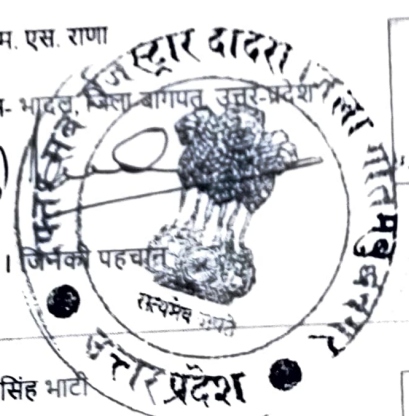 म. एस. राणा
- भादल, जिला-बागपत, उत्तर-प्रदेश
। जिनकी पहचान
सिंह भाटी
दफ्तर सब रजिस्ट्रार दादरी जिला गौतमबुद्धनगर
सत्यमेव जयते
उत्तर प्रदेश